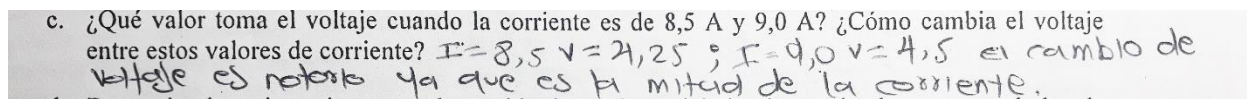 c. ¿Qué valor toma el voltaje cuando la corriente es de 8,5 A y 9,0 A? ¿Cómo cambia el voltaje
entre estos valores de corriente? I=8,5 V=4,25 ; I=9,0 V=4,5 el cambio de
voltaje es notorio ya que es la mitad de la corriente.